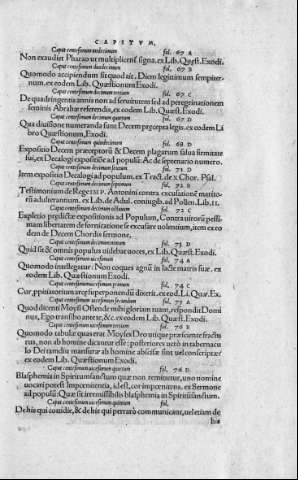 CAPITVM.
Caput centesimum undecimum fol. 67 A
Non exaudiet Pharao ut multiplicem signa, ex Lib. Quæst. Exodi.
Caput centesimum duodecimum fol. 67 B
Quomodo accipiendum sit quod ait, Diem legitimum sempiternum, ex eodem Lib. Quæstionum Exodi.
Caput centesimum decimum tertium fol. 67 C
De quadringentis annis non ad seruitutem sed ad peregrinationem
seminis Abrahæ referendis, ex eod. Lib. Quæst. Exodi.
Caput centesimum decimum quartum fol. 67 D
Qua diuisione numeranda sunt Decem præcepta legis. ex eodem Li
bro Quæstionum, Exodi.
Caput centesimum quindecimum fol. 68 D
Expositio Decem præceptorũ & Decem plagarum
sui, ex Decalogi expositiõe ad populũ: Ac de septenario numero.
fol. 71 D
Item expositio Decalogi ad populum, ex Tract. de x Chor. Psal.
fol. 72 B
rũ adulterantium. ex Lib. de Adul. coniugib. ad Pollen. Lib. 11.
fol. 72 C
Expletio prædictæ expositionis ad Populum, Contra uirorũ pessi-
mam libertatem de fornicatione se excusare uolentium, item ex eo
dem de Decem Chordis sermone,
fol. 73 D
Quid sit & omnis populus uidebat uoces, ex Lib. Quæst. Exodi.
Caput centesimum uicesimum fol. 74 A
Quomodo intelligatur: Non coques agnũ in lacte matris suæ. ex
eodem Lib. Quæstionum Exodi.
Caput centesimum uicesimum primum fol. 74 C
Cur, ppitiatorium arcę superponendũ dixerit. ex eod. Li. Quæ. Ex.
Caput centesimum uicesimum secundum fol. 75 A
Quod dicenti Moysi Ostende mihi gloriam tuam, respondit Domi
nus, Ego transibo ante te, &c ex eodem Lib. Quæst. Exodi.
Caput centesimum uicesimum tertium fol. 76 B
Quomodo tabulæ quas erat Moyses Deo utique præsciente fractu
rus, non ab homine dicantur esse: posteriores uerò in tabernacu
lo Dei tamdiu mansuræ ab homine abscisæ sint uel conscriptæ:
ex eodem Lib. Quæst. Exodi.
Caput centesimum uicesimum quartum fol. 76 D
Blasphemia in Spiritum sanctum quæ non remittetur, uno nomine
uocari potest Impœnitentia, id est, cor impœnitens. ex Sermone
ad populũ: Quæ sit irremissibilis blasphemia in Spiritũ sanctum.
Caput centesimum uicesimum quintum fol.
De his qui cotidie, & de his qui per rarò communicant, uel etiam de
his